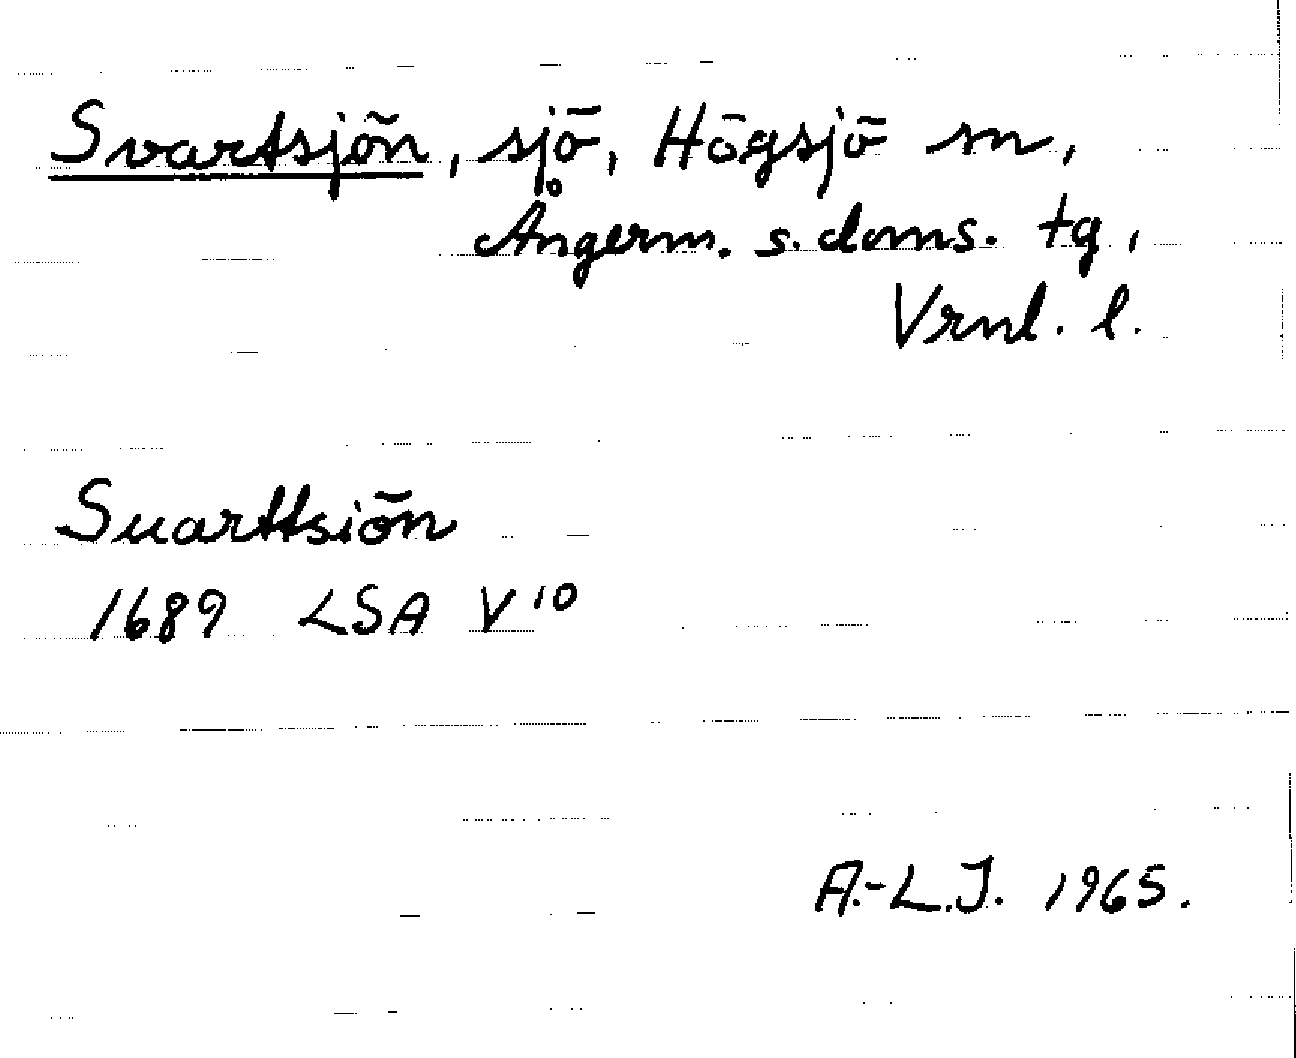 Svartsjön, sjö, Högsjö sn,
Ångerm. s. doms. tg,
Vrnl. l.
Suarttsiön
1689 LSA V 10
A.-L.J. 1965.